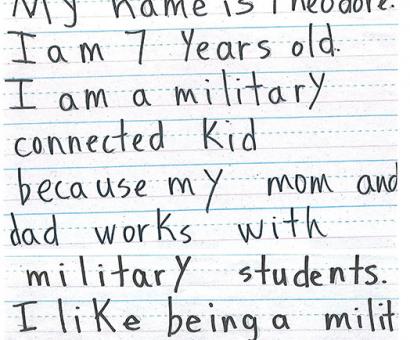 My name is Theodore.
I am 7 Years old.
I am a military
connected Kid
because my mom and
dad works with
military students.
I like being a milit